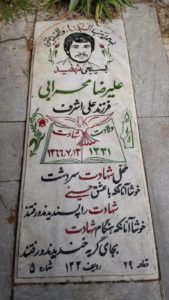 بسیجی شهید
علیرضا محرابی
فرزند علی اشرف
ولادت
شهادت
۱۳۳۱
۱۳۶۶،۷،۱۳
محل شهادت سردشت
خوشا آنانکه با عشق حسینی
شهادت را پسندیدند و رفتند
خوشا آنانکه هنگام شهادت
بجای گریه خندیدند و رفتند
قطعه ۲۹ ردیف ۱۲۲ شماره ۵